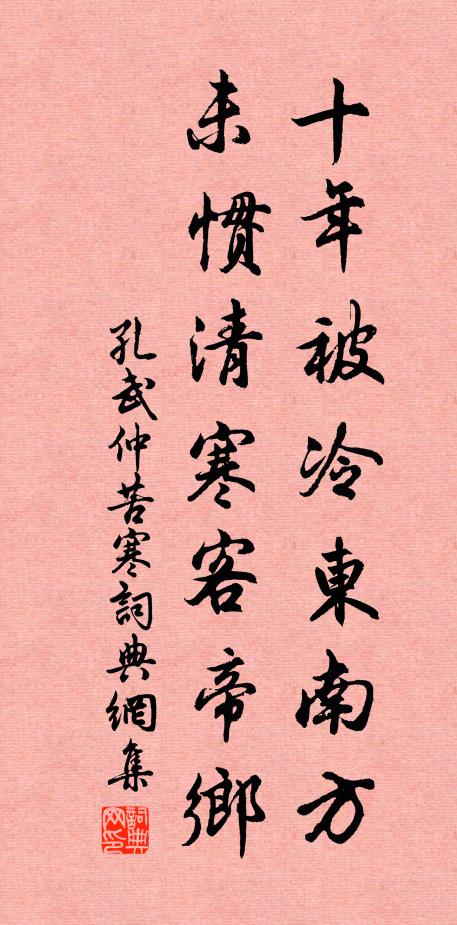 十年被冷東南方
未慣清寒客帝鄉
孔武仲苦寒詞典網集
詞典网印